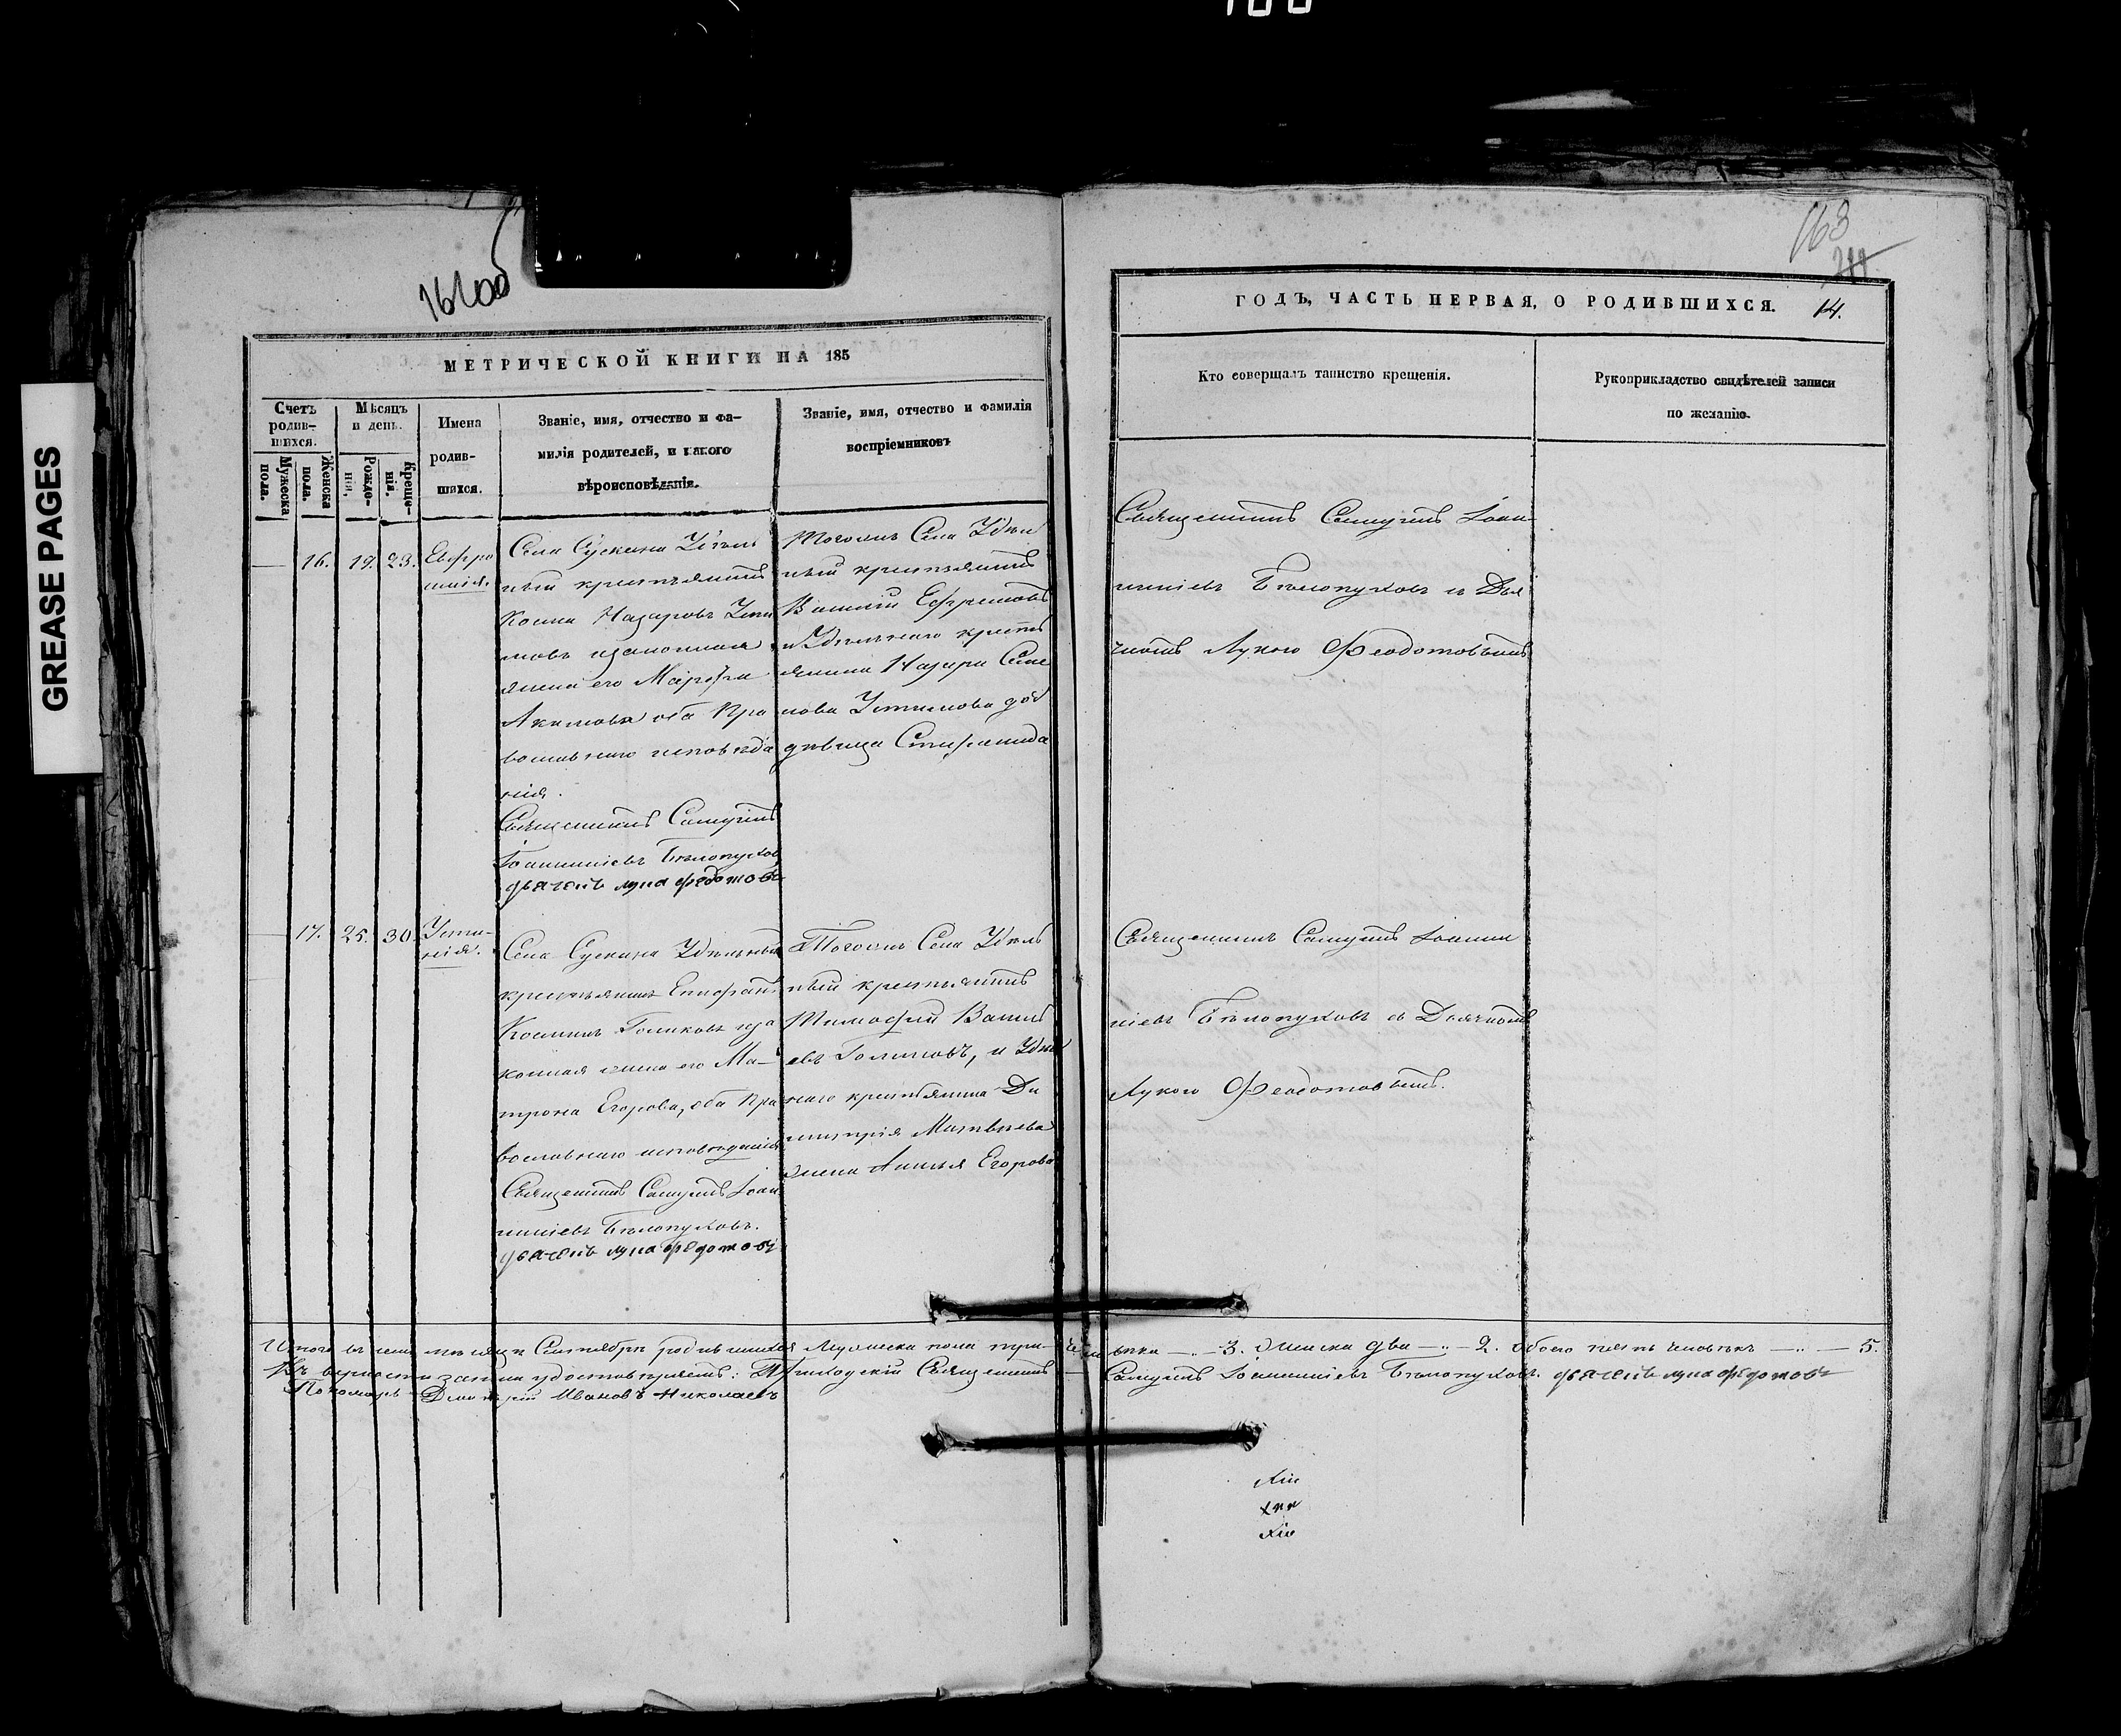 GREASE PAGES
163
14.
МЕТРИЧЕСКОЙ КНИГИ НА 185
Счетъ
родив-
шихся.
Мужеска
пола.
Женска
пола.
Мѣсяцъ
и день.
Рожде-
нія,
Креще-
нія.
Имена
родив-
шихся.
Званіе, имя, отчество и фа-
милія родителей, и какого
вѣроисповѣданія.
Званіе, имя, отчество и фамилія
воспріемниковъ
16.
19.
23.
Евфро
синія.
Села Сускана Удѣль
ный крестьянинъ
Косма Назаровъ Усти
мовъ изаконная
жена его Марѳа
Акимова оба Пра
вославнаго исповѣда
нія.
Священникъ Самуилъ
Іоанникіевъ Бѣлопуховъ
дьячекъ лука федотовъ
Тогожъ Села Удѣль
ный крестьянинъ
Василій Ефремовъ
и Удѣльнаго кресть
янина Назара Семе
нова Устимова доч
дѣвица Стефанида
17.
25.
30.
Усти-
нія.
Села Сускана Удѣльный
крестьянинъ Епифанъ
Косминъ Голиковъ иза
конная жена его Ма-
трона Егорова, оба Пра
вославнаго исповѣданія
Священникъ Самуилъ Іоан
никіевъ Бѣлопуховъ.
дьячекъ лука федотовъ
Тогожъ Села Удѣль
ный крестьянинъ
Тимофей Василь
евъ Голиковъ, и Удѣль
наго крестьянина Ди
митрія Матвѣева
жена Анисья Егорова
ГОДЪ, ЧАСТЬ ПЕРВАЯ, О РОДИВШИХСЯ.
Кто совершалъ таинство крещенія.
Рукоприкладство свидѣтелей записи
по желанію.
Священникъ Самуилъ Іоан-
никіевъ Бѣлопуховъ съ Дья
чкомъ Лукою Феодотовымъ
Священникъ Самуилъ Іоанни
кіевъ Бѣлопуховъ съ Дьячкомъ
Лукою Феодотовымъ.
Итого въ семъ мѣсяцѣ Сентябрѣ родившихся Мужеска пола три человѣка — 3. Женска два — 2. Обоего пять человѣкъ — 5.
Въ вѣрности записи удостовѣряемъ: Приходскій Священникъ — Самуилъ Іоанникіевъ Бѣлопуховъ. дьячекъ лука федотовъ
Пономарь Дмитрій Ивановъ Николаевъ